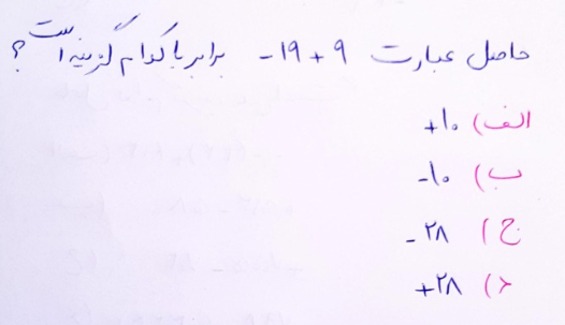 حاصل عبارت ۹ + ۱۹ - برابر با کدام گزینه است ؟
الف) +۱۰
ب) -۱۰
ج) -۲۸
د) +۲۸